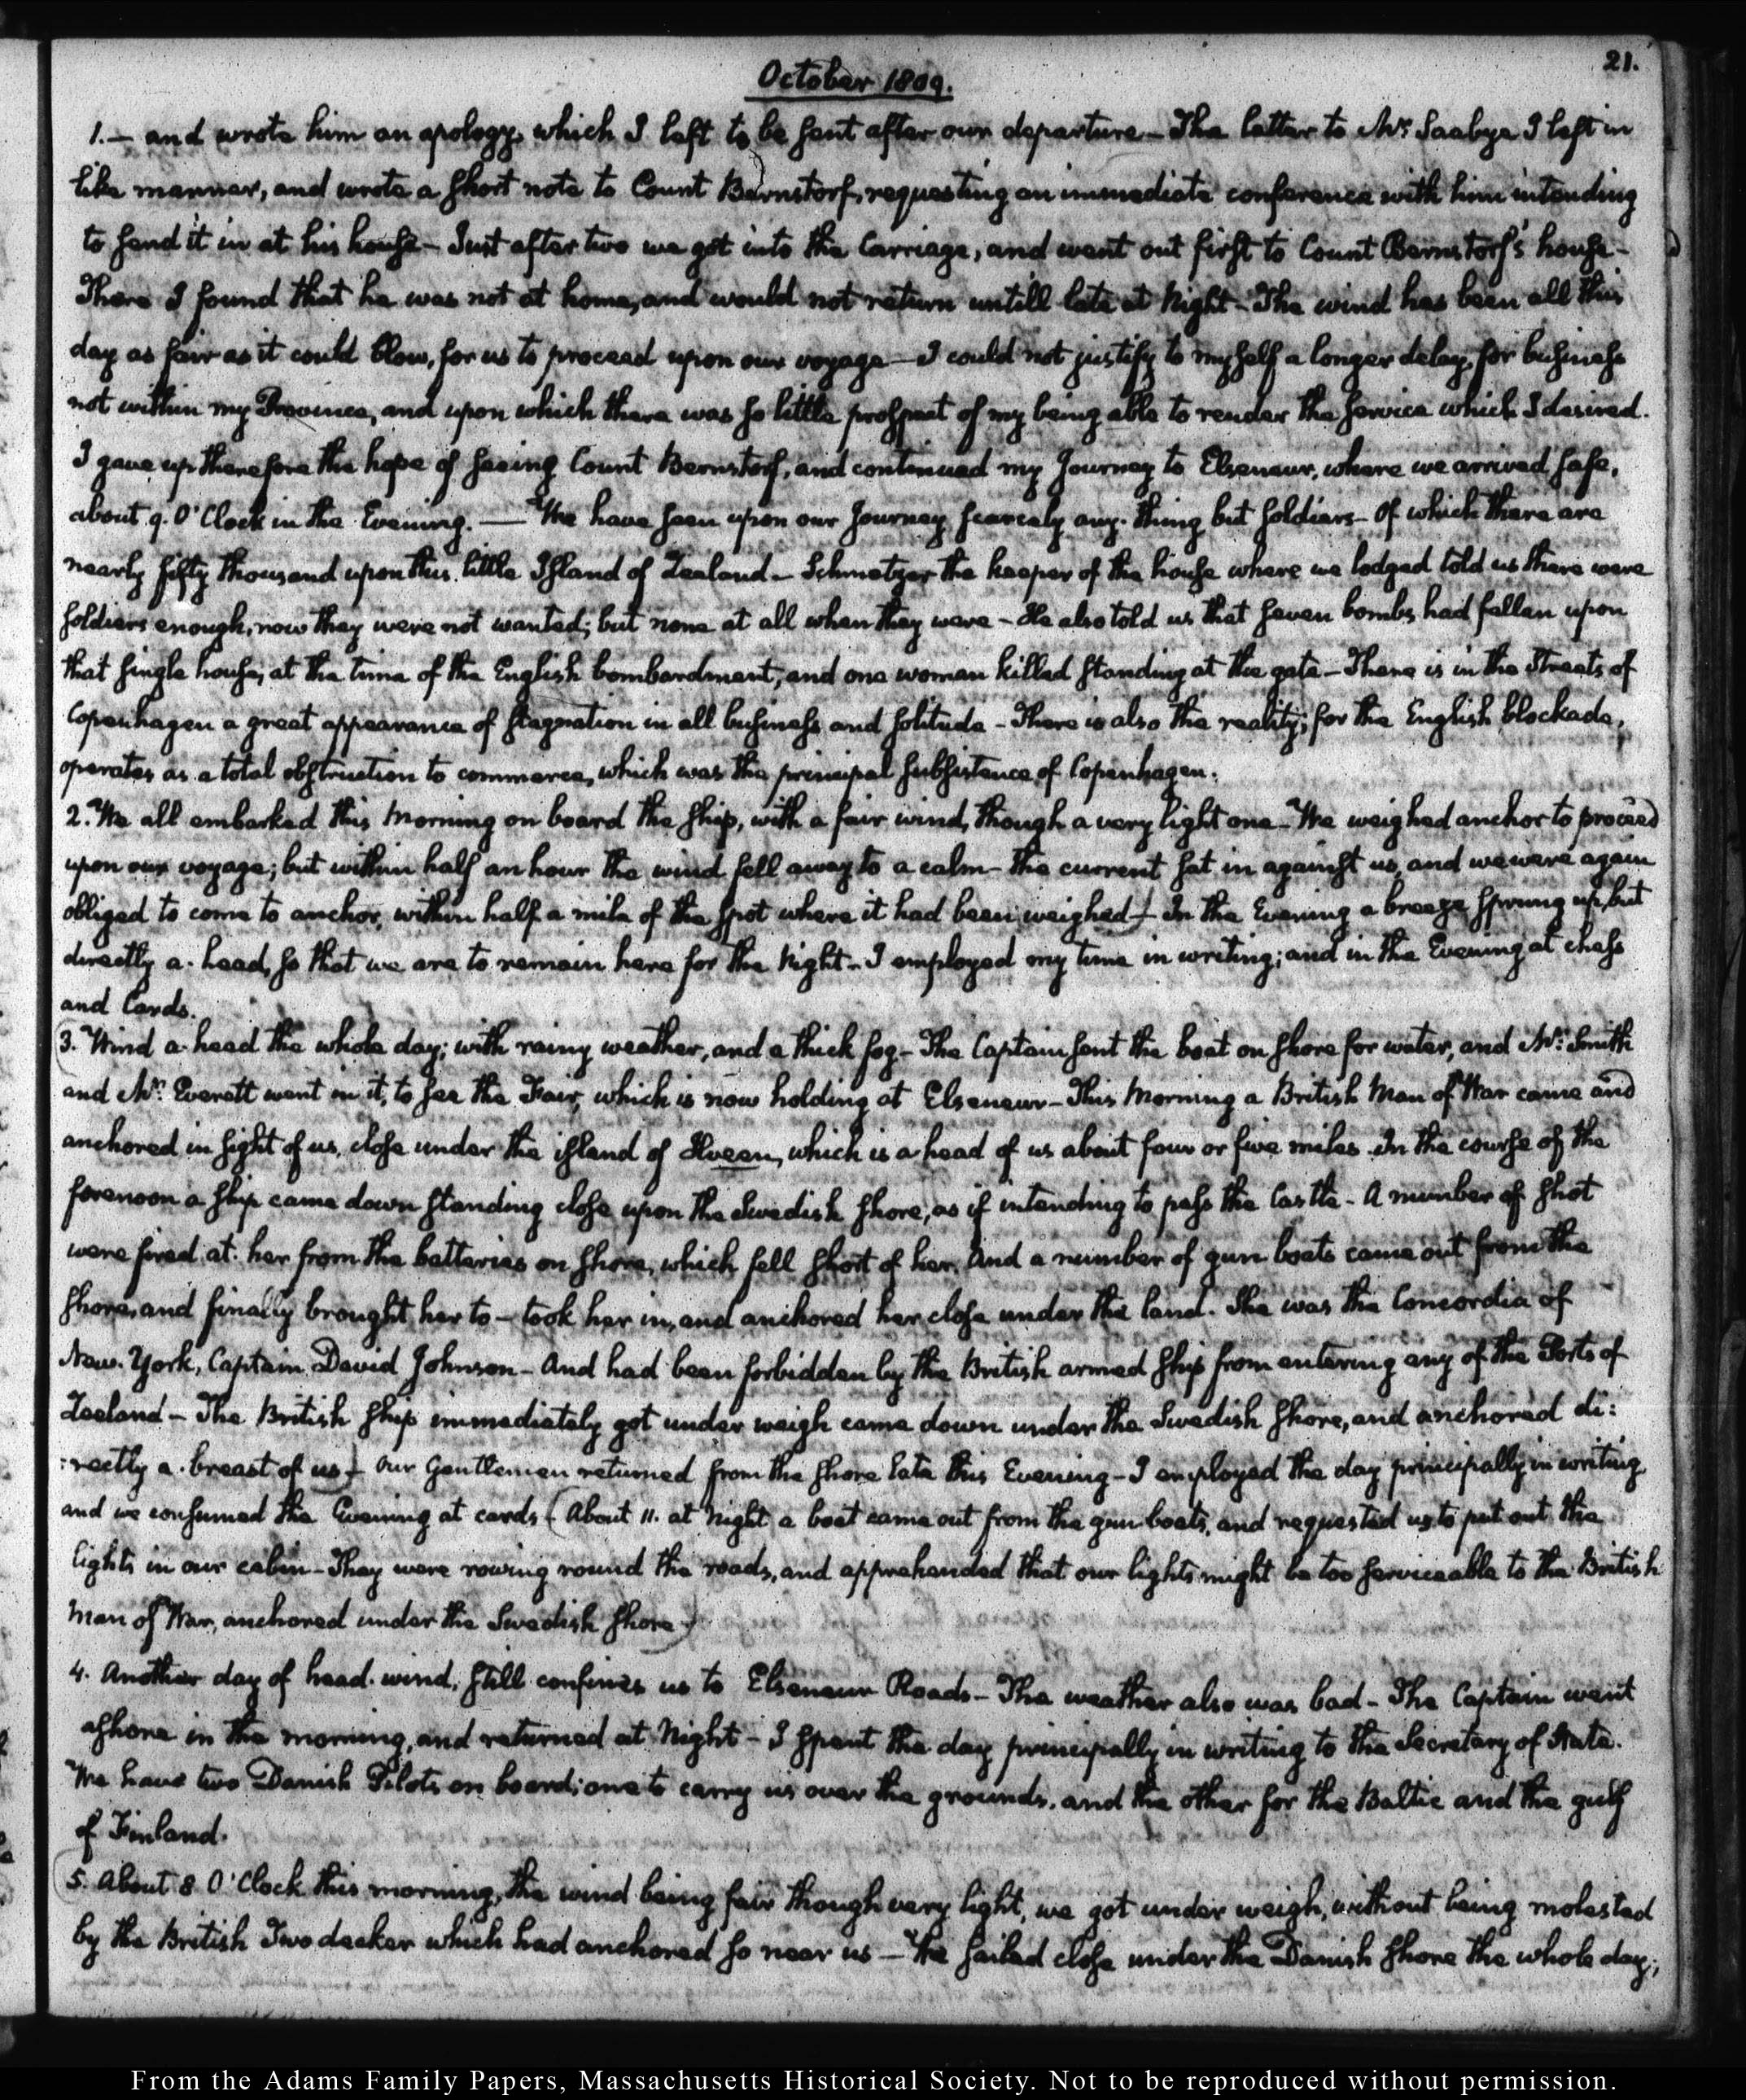 21.
October 1809.
1.— and wrote him an apology, which I left to be sent after our departure — The letter to Mr. Saabye I left in
like manner, and wrote a short note to Count Bernstorf, requesting an immediate conference with him intending
to send it in at his house — Just after two we got into the Carriage, and went out first to Count Bernstorf's house —
There I found that he was not at home, and would not return untill late at Night — The wind has been all this
day as fair as it could blow, for us to proceed upon our voyage — I could not justify to myself a longer delay, for business
not within my Province, and upon which there was so little prospect of my being able to render the service which I desired.
I gave up therefore the hope of seeing Count Bernstorf, and continued my Journey to Elseneur, where we arrived safe,
about 9. O'Clock in the Evening. — We have seen upon our Journey scarcely any thing but soldiers — Of which there are
nearly fifty thousand upon this little Island of Zealand — Schmetzer the keeper of the house where we lodged told us there were
soldiers enough, now they were not wanted; but none at all when they were — He also told us that seven bombs had fallen upon
that single house, at the time of the English bombardment, and one woman killed standing at the gate — There is in the Streets of
Copenhagen a great appearance of stagnation in all business and solitude — There is also the reality; for the English blockade,
operates as a total obstruction to commerce, which was the principal subsistence of Copenhagen.
2. We all embarked this Morning on board the ship, with a fair wind, though a very light one — We weighed anchor to proceed
upon our voyage; but within half an hour the wind fell away to a calm — the current set in against us, and we were again
obliged to come to anchor, within half a mile of the spot where it had been weighed — In the Evening a breeze sprung up, but
directly a-head, so that we are to remain here for the Night — I employed my time in writing; and in the Evening at chess
and Cards.
3. Wind a-head the whole day; with rainy weather, and a thick fog — The Captain sent the boat on shore for water, and Mr. Smith
and Mr. Everett went in it, to see the Fair, which is now holding at Elseneur — This Morning a British Man of War came and
anchored in sight of us, close under the island of Hveen, which is a-head of us about four or five miles. In the course of the
forenoon a ship came down standing close upon the Swedish shore, as if intending to pass the Castle — A number of shot
were fired at her from the batteries on shore, which fell short of her. And a number of gun boats came out from the
shore, and finally brought her to — took her in, and anchored her close under the land. She was the Concordia of
New-York, Captain David Johnson — And had been forbidden by the British armed ship from entering any of the Ports of
Zeeland — The British ship immediately got under weigh came down under the Swedish shore, and anchored di:
:rectly a-breast of us) — Our Gentlemen returned from the shore late this Evening — I employed the day principally in writing,
and we consumed the Evening at cards (About 11. at Night a boat came out from the gun boats, and requested us to put out the
lights in our cabin — They were rowing round the roads, and apprehended that our lights might be too serviceable to the British
Man of War, anchored under the Swedish shore)
4. Another day of head-wind, still confines us to Elseneur Roads — The weather also was bad — The Captain went
ashore in the morning, and returned at Night — I spent the day principally in writing to the Secretary of State.
We have two Danish Pilots on board; one to carry us over the grounds, and the other for the Baltic and the gulf
of Finland.
5. About 8 O'Clock this morning, the wind being fair though very light, we got under weigh, without being molested
by the British Two decker which had anchored so near us — We sailed close under the Danish shore the whole day;
From the Adams Family Papers, Massachusetts Historical Society. Not to be reproduced without permission.